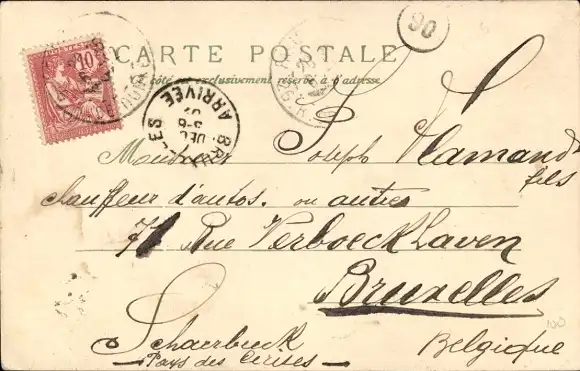 90
CARTE POSTALE
Ce côté est exclusivement réservé à l'adresse.
10
BRUXELLES
ARRIVÉE
DEC
Monsieur Joseph Flamand
fils
chauffeur d'autos. ou autres
71 Rue Verboeckhaven
Bruxelles
Schaerbeeck
Belgique
Pays des Cerises
100